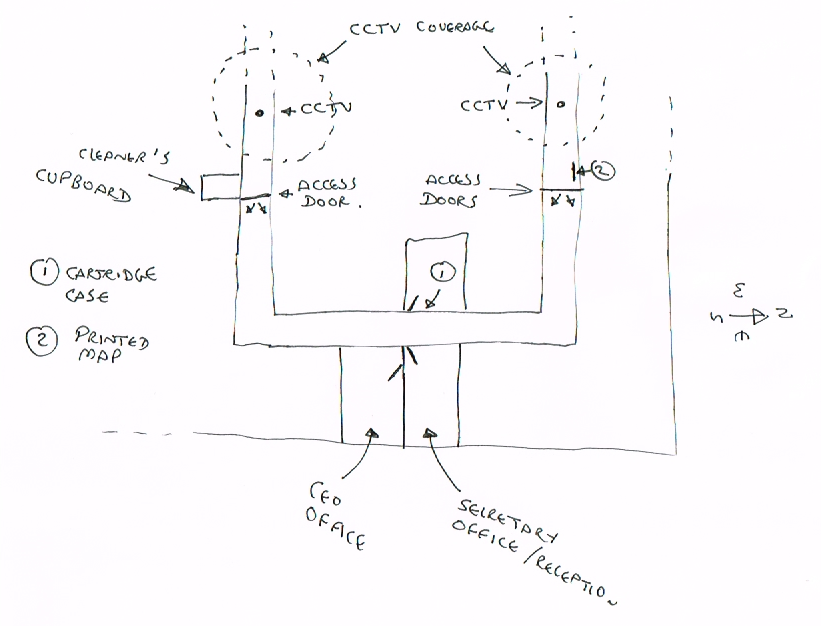 CCTV COVERAGE
CCTV
CCTV
CLEANER'S
CUPBOARD
ACCESS
DOOR.
ACCESS
DOORS
2
1
1 CARTRIDGE
CASE
2 PRINTED
MAP
W
S N
E
CEO
OFFICE
SECRETARY
OFFICE/RECEPTION